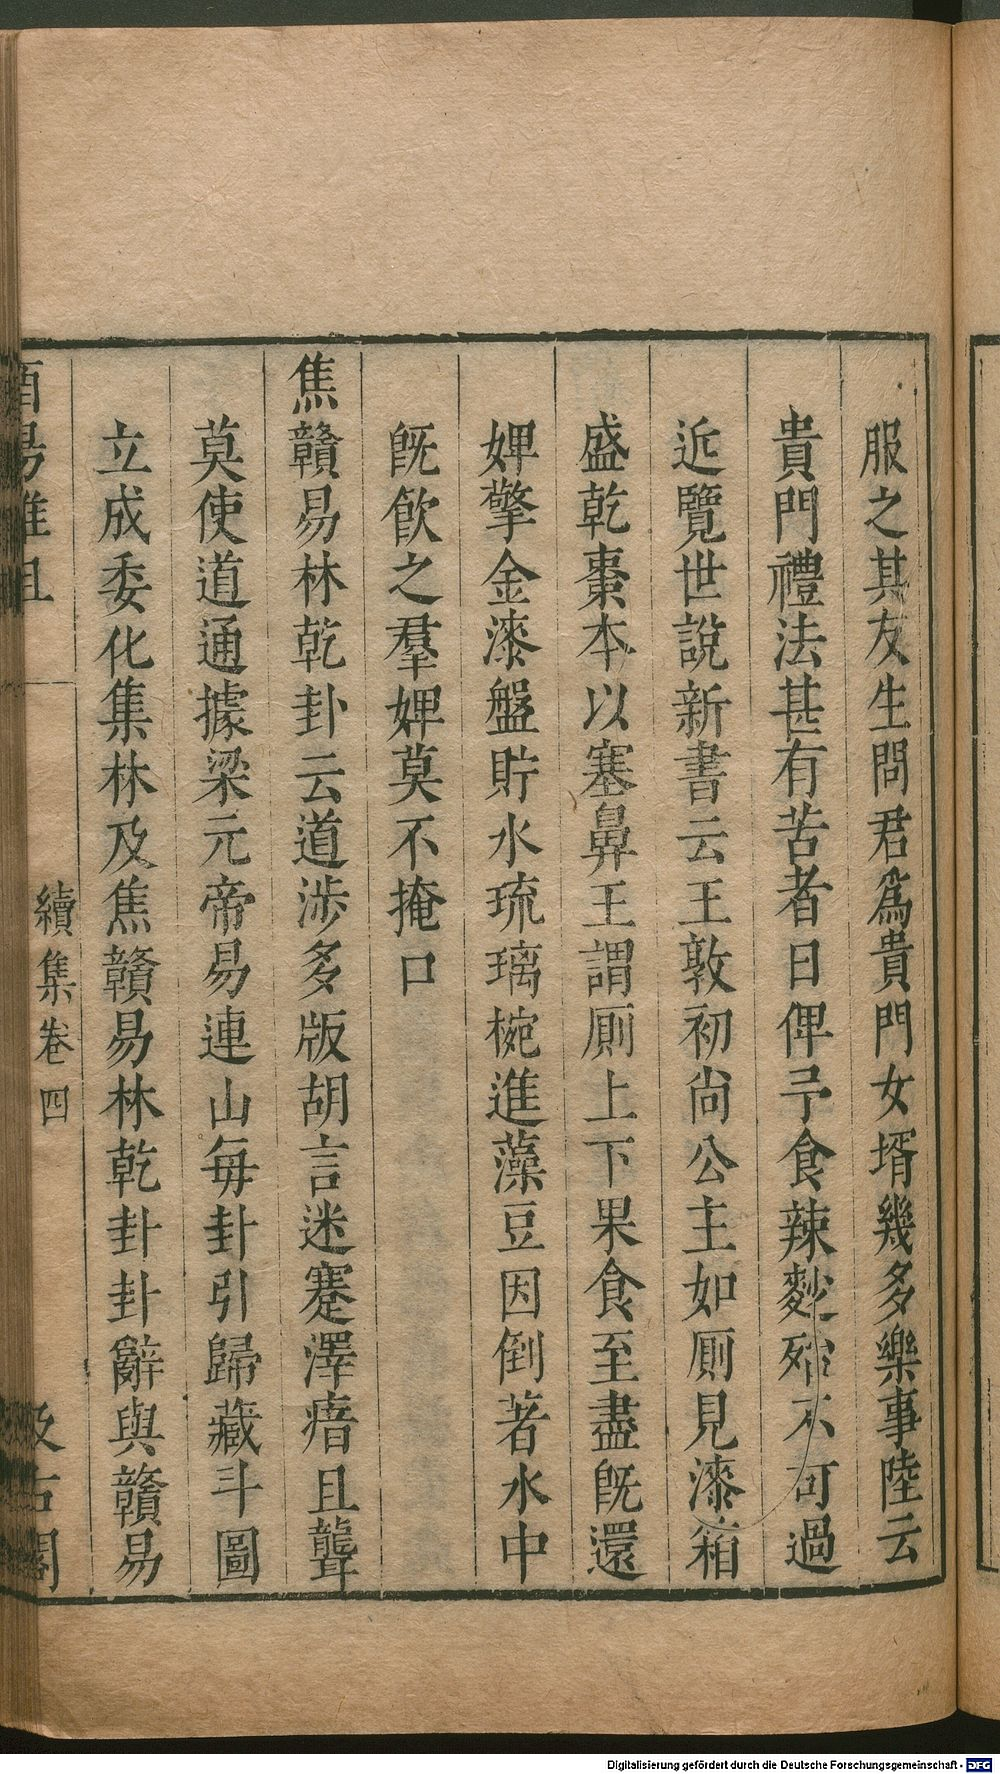 服之其友生問君爲貴門女壻幾多樂事陸云
貴門禮法甚有苦者日俾予食辣麨殆不可過
近覽世說新書云王敦初尚公主如厠見漆箱
盛乾棗本以塞鼻王謂厠上下果食至盡旣還
婢擎金漆盤貯水琉璃椀進藻豆因倒著水中
旣飮之羣婢莫不掩口
焦贛易林乾卦云道涉多版胡言迷蹇澤瘖且聾
莫使道通據梁元帝易連山每卦引歸藏斗圖
立成委化集林及焦贛易林乾卦卦辭與贛易
酉陽雜俎
續集卷四
汲古閣
Digitalisierung gefördert durch die Deutsche Forschungsgemeinschaft - DFG